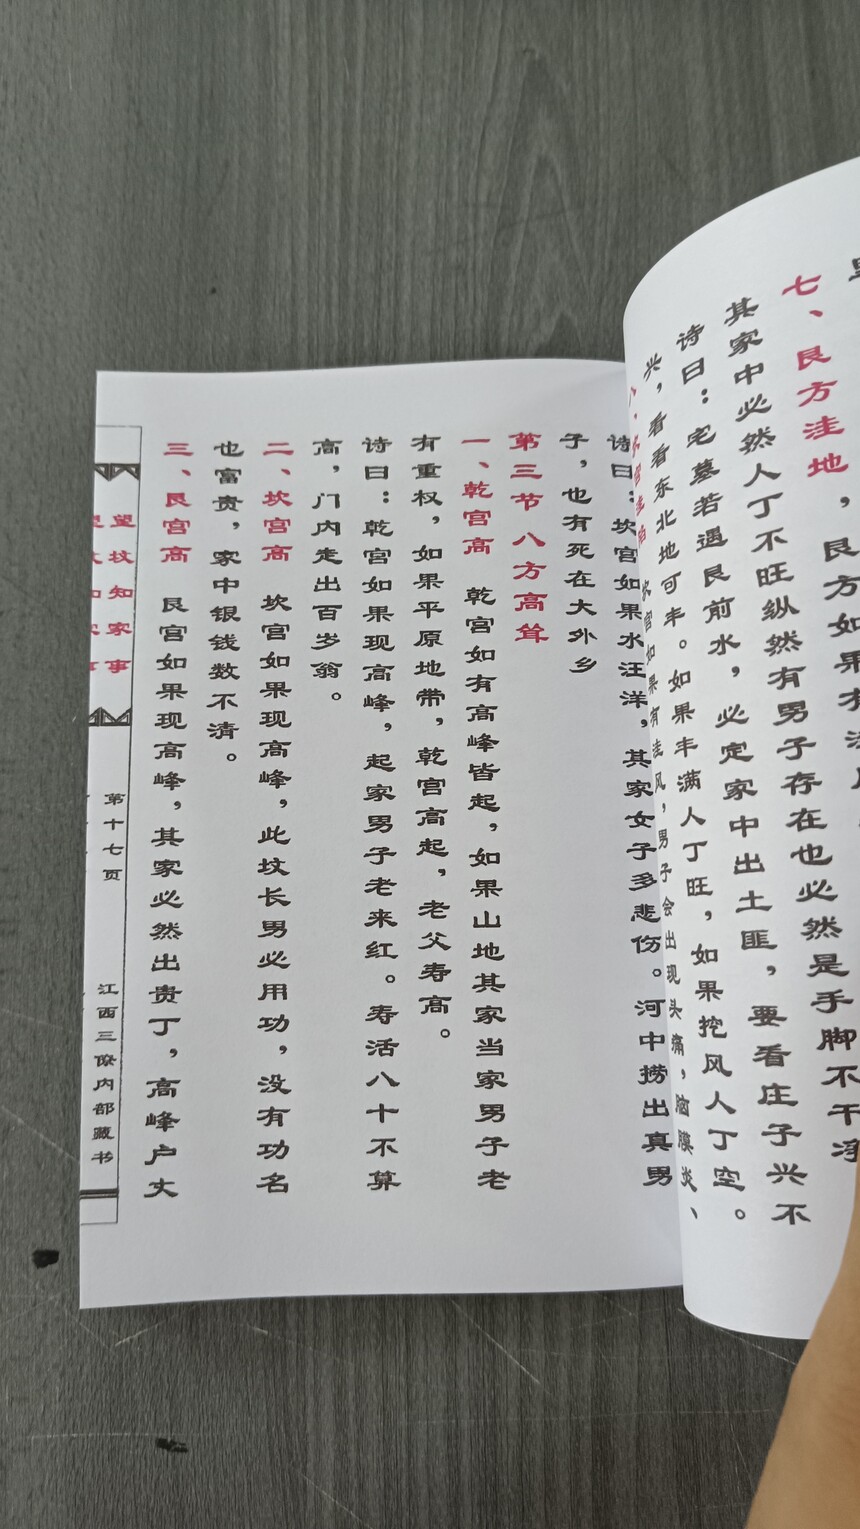 七、艮方洼地，艮方如果有
其家中必然人丁不旺纵然有男子存在也必然是手脚不干净
诗曰：宅墓若遇艮前水，必定家中出土匪，要看庄子兴不
兴，看看东北地可丰。如果丰满人丁旺，如果挖风人丁空。
坎宫如果有洼风，男子会出现头痛，脑膜炎、
诗曰：坎宫如果水汪洋，其家女子多悲伤。河中捞出真男
子，也有死在大外乡
第三节 八方高耸
一、乾宫高 乾宫如有高峰皆起，如果山地其家当家男子老
有重权，如果平原地带，乾宫高起，老父寿高。
诗曰：乾宫如果现高峰，起家男子老来红。寿活八十不算
高，门内走出百岁翁。
二、坎宫高 坎宫如果现高峰，此坟长男必用功，没有功名
也富贵，家中银钱数不清。
三、艮宫高 艮宫如果现高峰，其家必然出贵丁，高峰户丈
望坟知家事
第十七页
江西三僚内部藏书